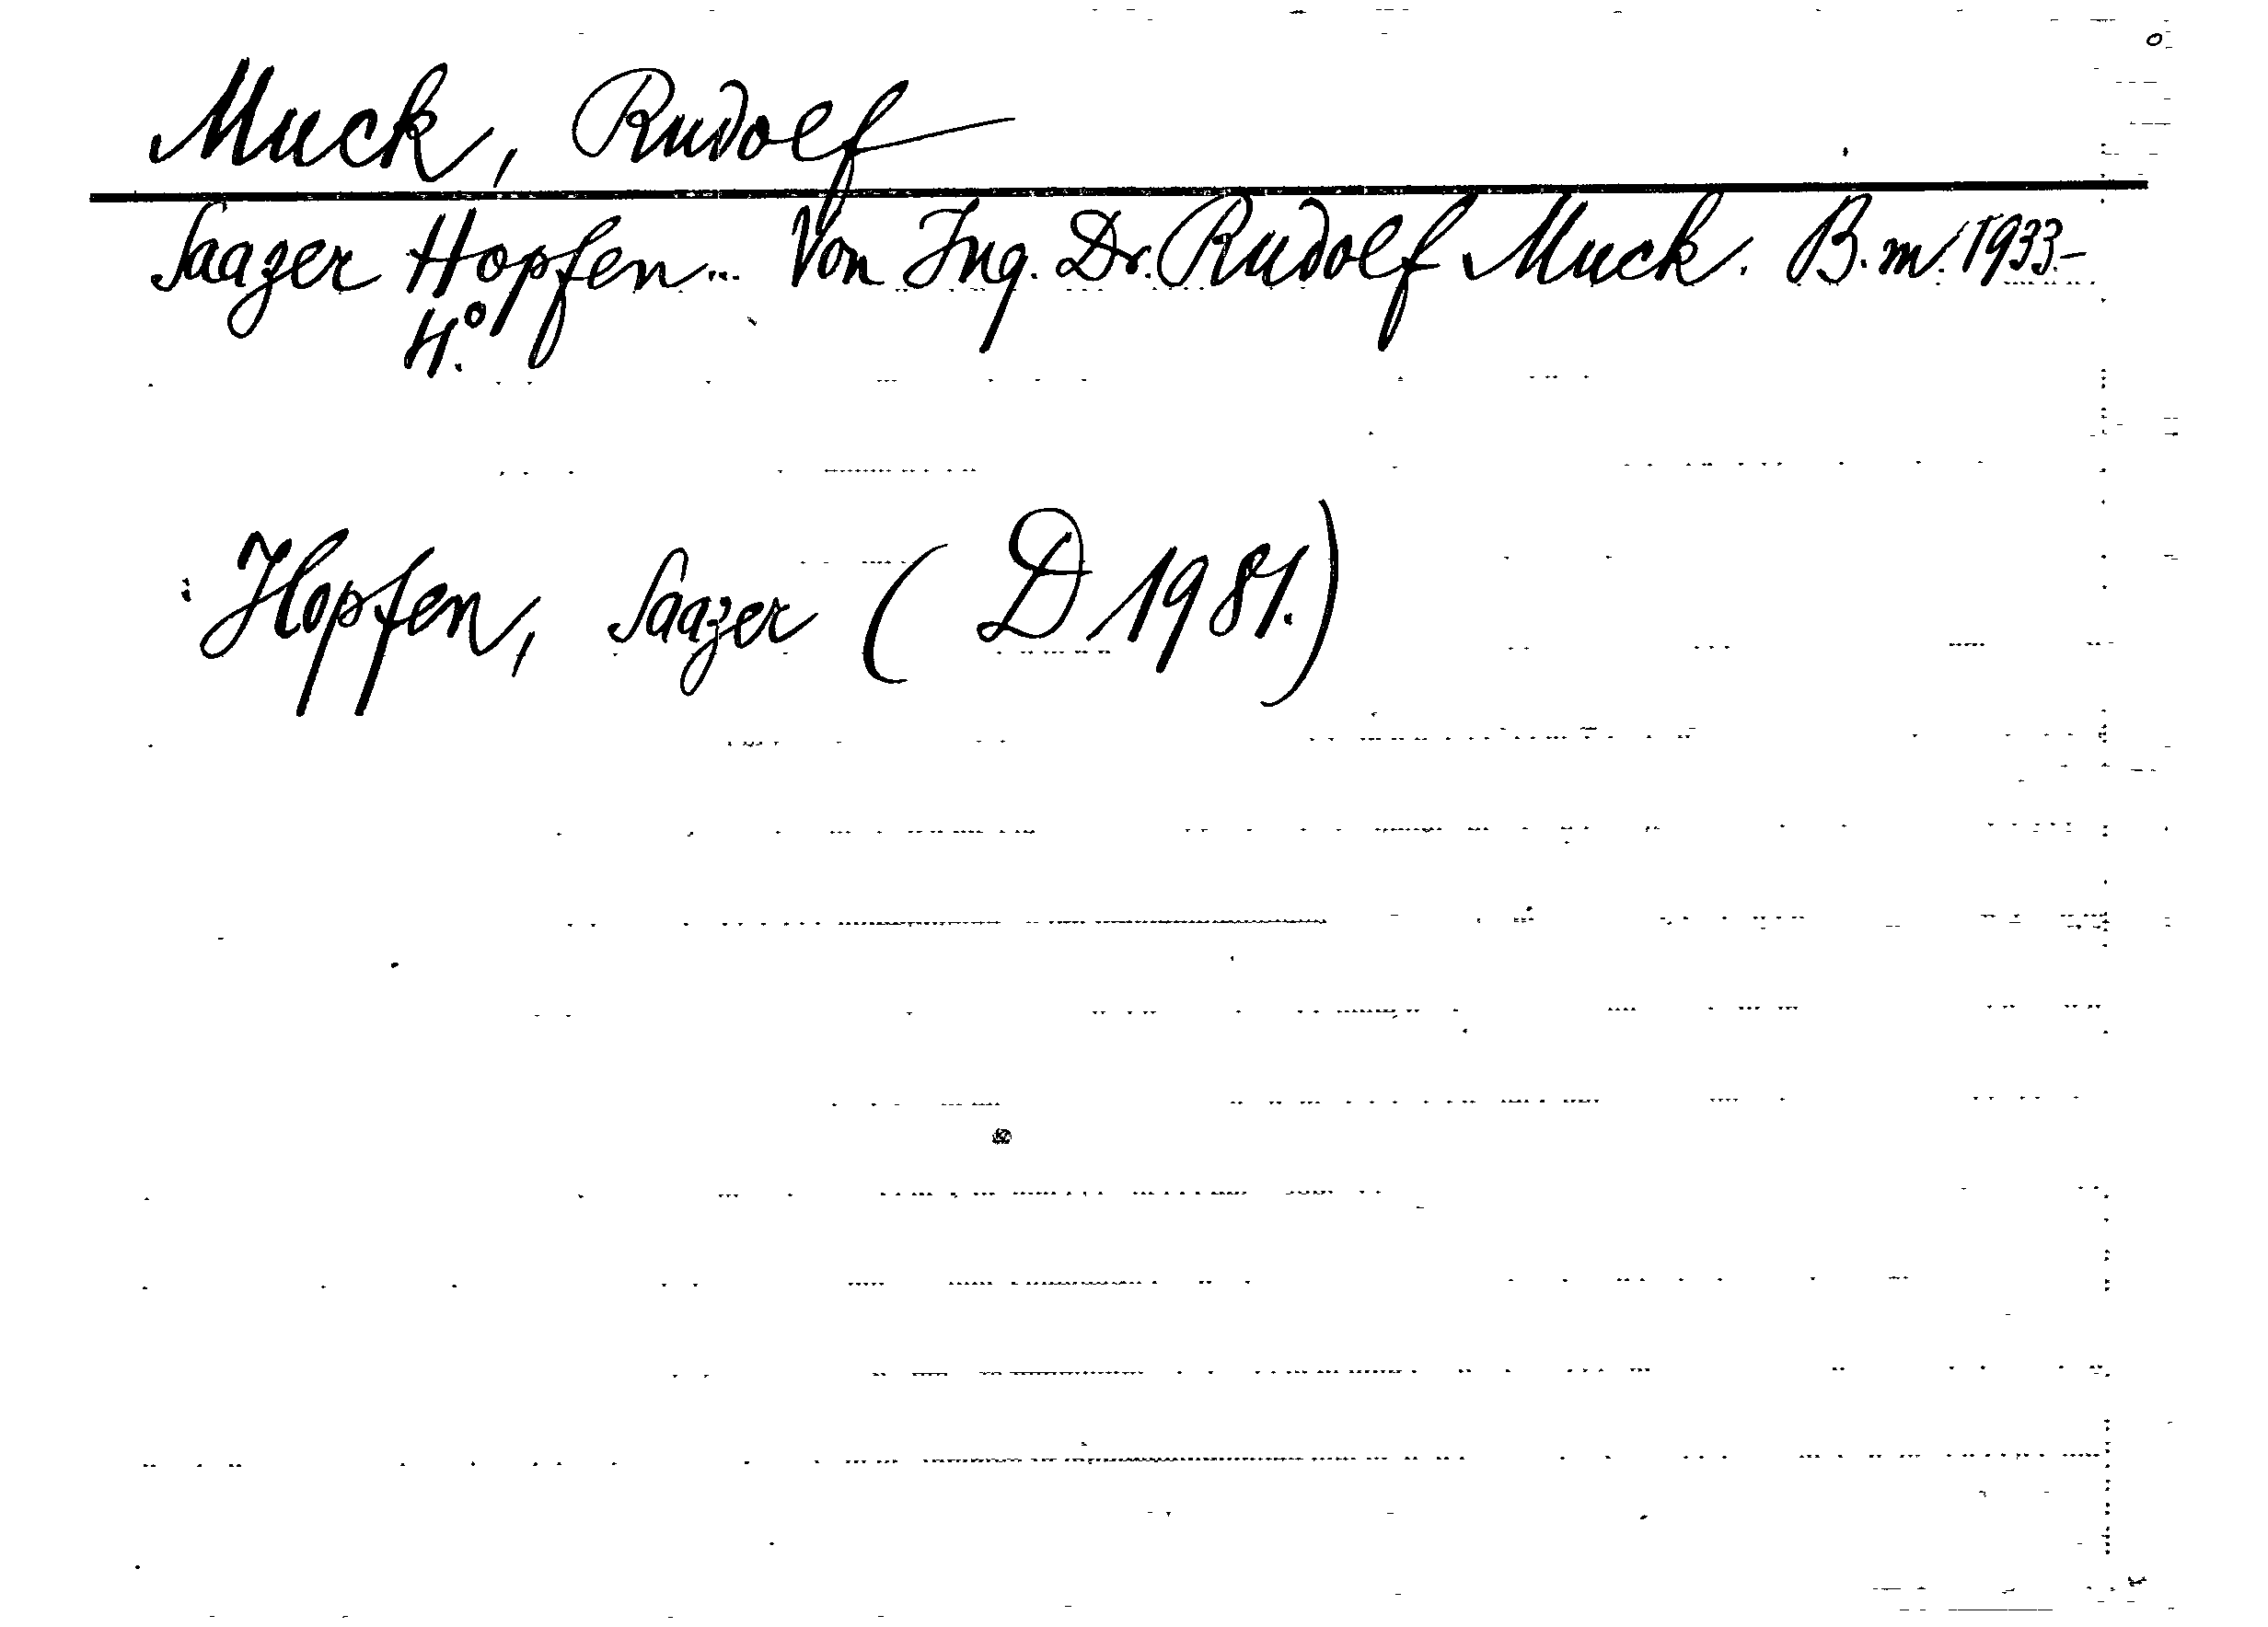 Muck, Rudolf
Saazer Hopfen... Von Ing. Dr. Rudolf Muck. B.m. 1933.-
4.º
Hopfen, Saazer (D 1981.)